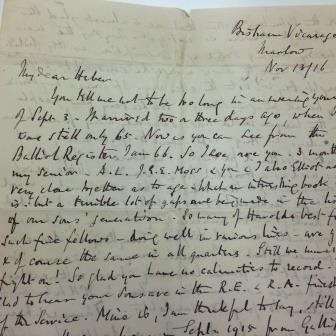 Bisham Vicarage
Marlow
Nov 13/16
My dear Heber
You tell me not to be so long in answering yours
of Sept. 3 - It arrived two or three days ago, when I
was still only 65. Now as you can see from the
Balliol Register I am 66. So I see are you. 3 months
my senior - A.L. J.E.E. Moss & you & I also Elliot
very close together as to age. What an interesting book
is. but a terrible lot of gaps are being made in the
of our sons' generation. So many of Harold's best
such fine fellows - doing well in various lines - are
& of course the same in all quarters. Still we must
fight on! So glad you have no calamities to record.
to hear your sons are in the R.E. & R.A.
of the Service. Mine is, I am thankful to say, still
Sept. 1915 from